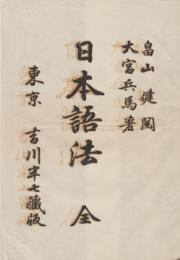 畠山健閲
大宮兵馬著
日本語法 全
東京 吉川半七蔵版